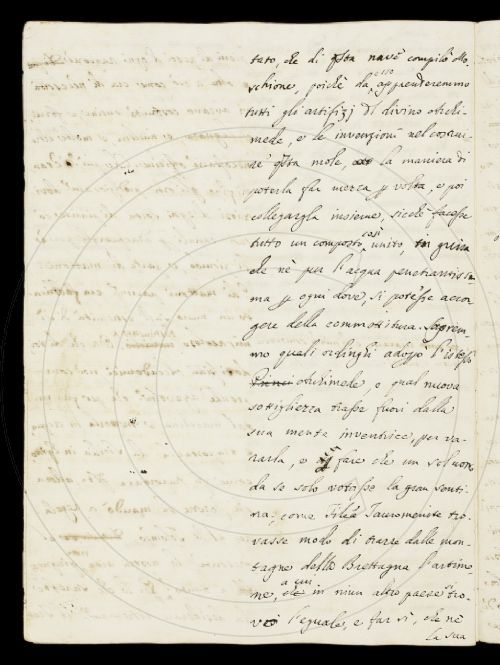 tato, che di qsta nave compilò Mo-
schione, poichè da esso apprenderemmo
tutti gli artifizj dl divino Archi-
mede, e le invenzioni nel costrui-
re qsta mole, la maniera di
poterla far mezza p volta, e poi
collegargla insieme, sicchè facesse
tutto un composto così unito, in guisa
che nè pur l'acqua penetrantissi-
ma p ogni dove, si potesse accor-
gere della commettitura. Sapren-
mo quali ordinghi adoprò l'istesso
Archimede, e qual nuova
sottigliezza trasse fuori dalla
sua mente inventrice, per va-
rarla, e fare che un sol uom
da se solo votasse la gran senti-
na, come Filéa Tauromenite tro-
vasse modo di trarre dalle mon-
tagne della Brettagna l'arbimo-
ne, a cui in niun altro paese si tro-
vò l'eguale, e far sì, che nè
la sua